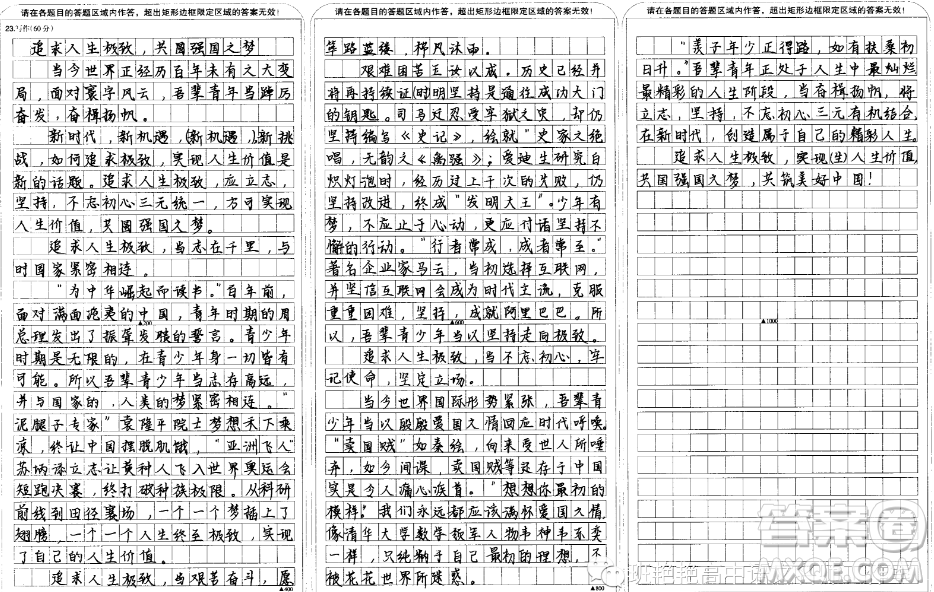 请在各题目的答题区域内作答，超出矩形边框限定区域的答案无效！
23.写作(60分)
追求人生极致，共圆强国之梦
当今世界正经历百年未有之大变
局，面对寰宇风云，吾辈青年当踔厉
奋发，奋楫扬帆。
新时代，新机遇，(新机遇,)新挑
战，如何追求极致，实现人生价值是
新的话题。追求人生极致，应立志，
坚持，不忘初心三元统一，方可实现
人生价值，共圆强国之梦。
追求人生极致，当志在千里，与
时国家紧密相连。
“为中华崛起而读书。”百年前，
面对满面疮夷的中国，青年时期的周
▲200
总理发出了振聋发聩的誓言。青少年
时期是无限的，在青少年身一切皆有
可能。所以吾辈青少年当志存高远，
并与国家的，人类的梦紧密相连。“
泥腿子专家”袁隆平院士梦想禾下乘
凉，终让中国摆脱肌饿，“亚洲飞人”
苏炳添立志让黄种人飞入世界奥运会
短跑决赛，终打破种族极限。从科研
前线到田径赛场，一个一个梦插上了
翅膀，一个一个人生终至极致，实现
了自己的人生价值。
追求人生极致，当艰苦奋斗，愿
▲400
请在各题目的答题区域内作答，超出矩形边框限定区域的答案无效！
筚路蓝缕，栉风沐雨。
艰难困苦玉汝以成。历史已经并
将再持续证(时)明坚持是通往成功大门
的钥匙。司马迁忍受牢狱之灾，却仍
坚持编写《史记》，绘就“史家之绝
唱，无韵之《离骚》；爱迪生研究白
炽灯泡时，经历过上千次的失败，仍
坚持改进，终成“发明大王”。少年有
梦，不应止于心动，更应付诸坚持不
懈的行动。“行者常成，成者常至。”
著名企业家马云，当初选择互联网，
并坚信互联网会成为时代主流，克服
重重困难，坚持，成就阿里巴巴。所
▲600
以，吾辈青少年当以坚持走向极致。
追求人生极致，当不忘初心，牢
记使命，坚定立场。
当今世界国际形势紧张，吾辈青
少年当以殷殷爱国之情回应时代呼唤。
“卖国贼”如秦绘，向来受世人所唾
弃，如今间谍，卖国贼等还存于中国
实是令人痛心疾首。“想想你最初的
模样。”我们永远都应该满怀爱国之情，
像清华大学数学领军人物韦神韦东奕
一样，只纯粹于自己最初的理想，不
被花花世界所迷惑。
▲800
请在各题目的答题区域内作答，超出矩形边框限定区域的答案无效！
“羡子年少正得路，如有扶桑初
日升。”吾辈青年正处于人生中最灿烂
最精彩的人生阶段，当奋楫扬帆，将
立志，坚持，不忘初心三元有机结合，
在新时代，创造属于自己的精彩人生。
追求人生极致，实现(生)人生价值，
共圆强国之梦，共筑美好中国！
▲1000
答案圈
MXQE.COM